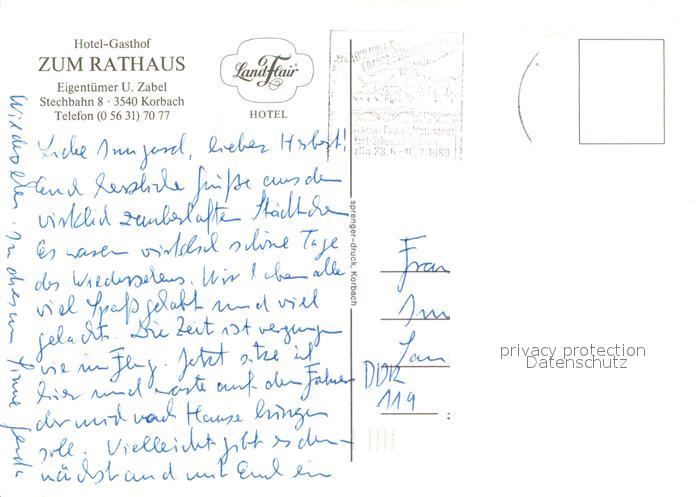 Hotel-Gasthof
ZUM RATHAUS
Eigentümer U. Zabel
Stechbahn 8 · 3540 Korbach
Telefon (0 56 31) 70 77
Land Flair
HOTEL
Liebe Irmgard, lieber Herbert!
Euch herzliche Grüße aus dem
wirklich zauberhaften Städtchen
Es waren wirklich schöne Tage
des Wiedersehens. Wir haben alle
viel Spaß gehabt und viel
gelacht. Die Zeit ist vergangen
wie im Flug. Jetzt sitze ich
hier und warte auf den Fahrer
der mich nach Hause bringen
soll. Vielleicht gibt es dem-
nächst auch mit Euch ein
Wiedersehen. In diesem Sinne
sprenger-druck, Korbach
Frau
DDR
119
privacy protection
Datenschutz